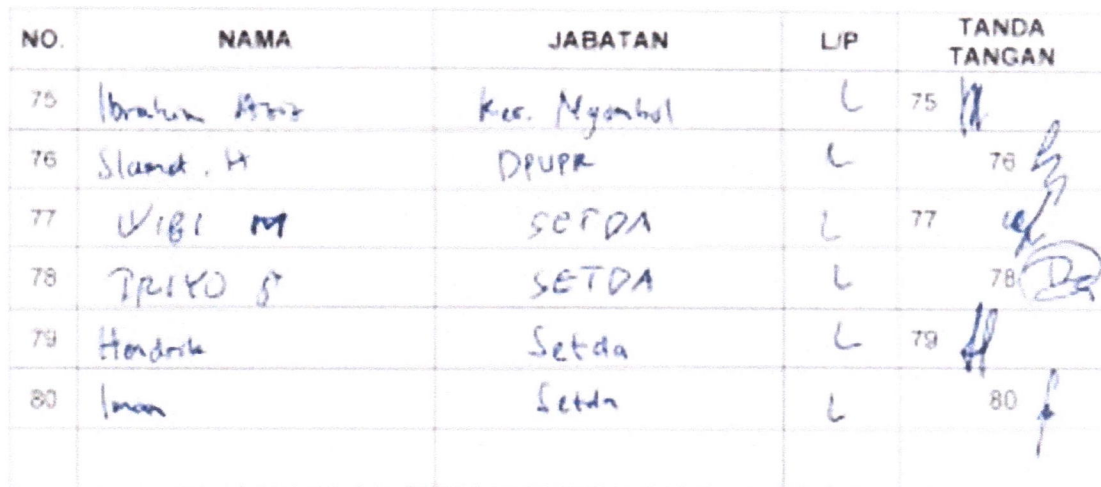 NO. NAMA JABATAN L/P TANDA TANGAN
75 Ibrahim Aziz Kec. Ngombol L 75
76 Slamet. H DPUPR L 76
77 WIBI M SETDA L 77
78 TRIYO S SETDA L 78
79 Hendrik Setda L 79
80 Iman Setda L 80